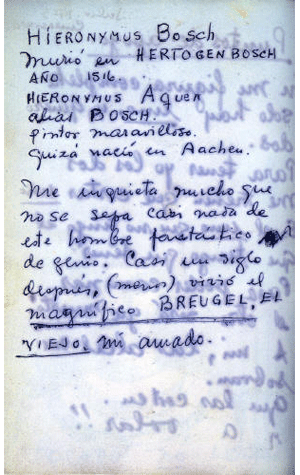 HIERONYMUS Bosch
murió en HERTOGENBOSCH
AÑO 1516.
HIERONYMUS Aquen
alias BOSCH.
pintor maravilloso.
quizá nació en Aachen.
Me inquieta mucho que
no se sepa casi nada de
este hombre fantástico
de genio. Casi un siglo
despues, (menos) vivió el
magnífico BREUGEL, EL
VIEJO, mi amado.